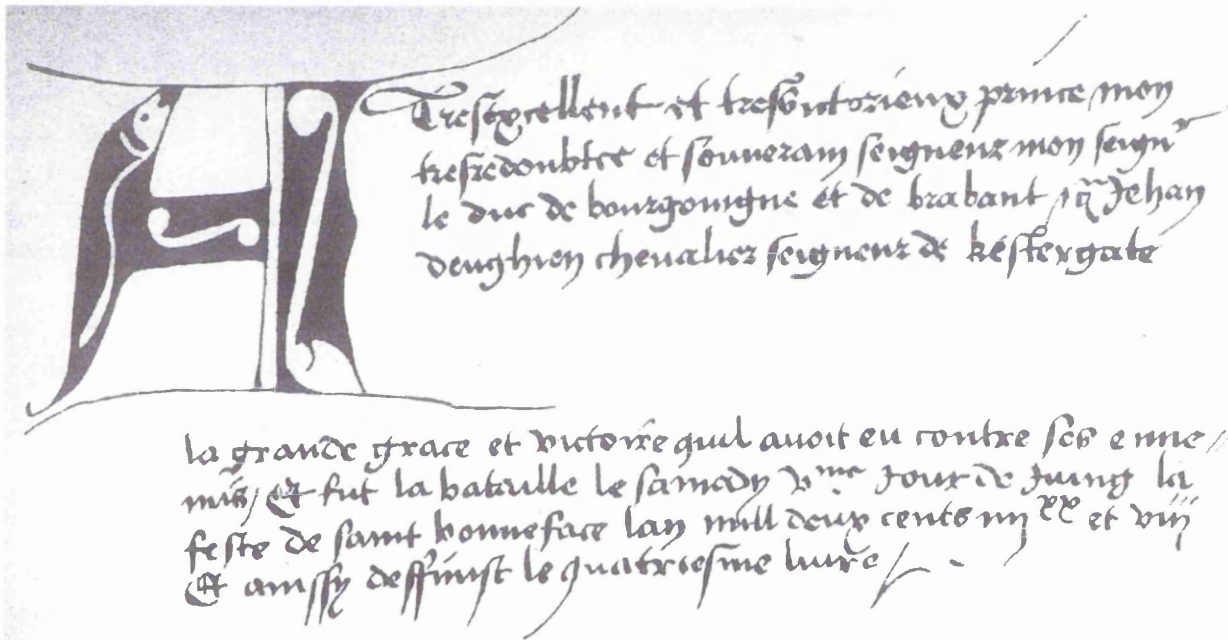 A Tresexcellent et tresvictorieux prince / mon
tresredoubtee et souverain seigneur mon seignr
le duc de bourgoingne et de brabant / Jehan
denghien chevalier seigneur de kestergate
la grande grace et victoire quil avoit eu contre ses enne//
mis / Et fut la bataille le samedy vme Jour de Juing la
feste de saint bonneface lan mill deux cents iiii xx et viii
Et ainssy deffinist le quatriesme livre /